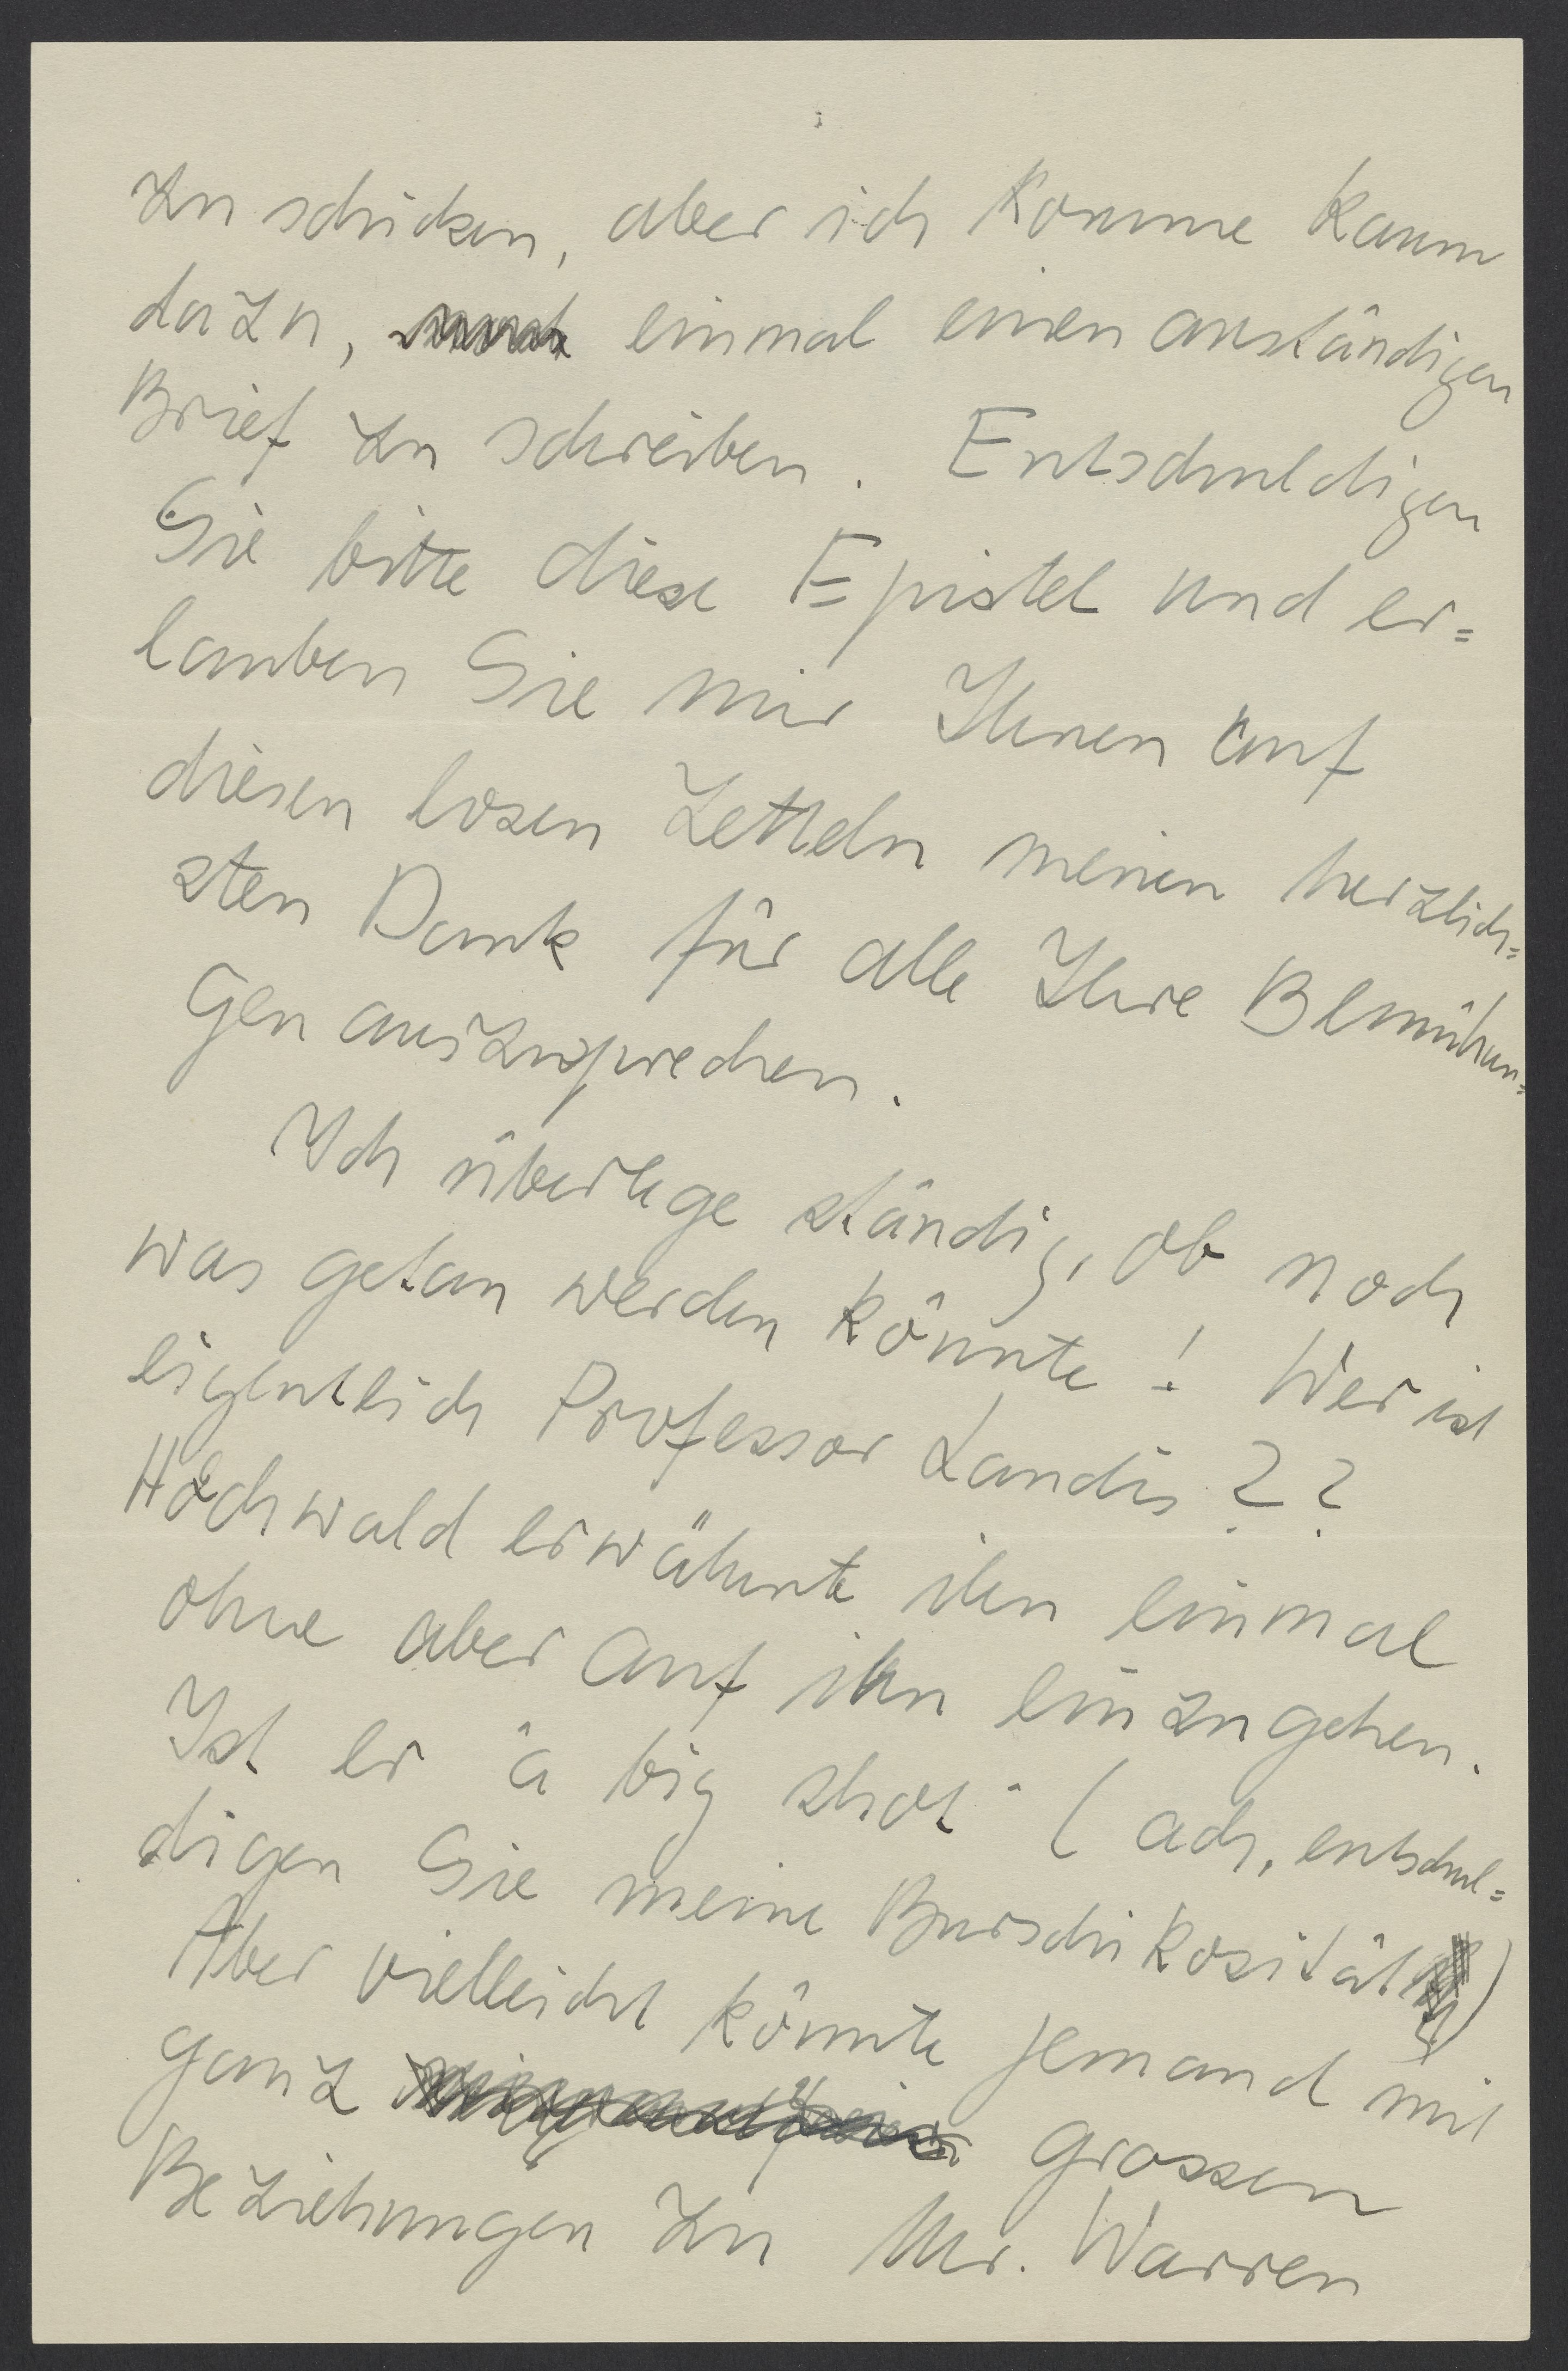 zu schicken, aber ich komme kaum
dazu, einmal einen anständigen
Brief zu schreiben. Entschuldigen
Sie bitte diese Epistel und er=
lauben Sie mir Ihnen auf
diesen losen Zetteln meinen herzlich=
sten Dank für alle Ihre Bemühun=
gen auszusprechen.
Ich überlege ständig, ob noch
was getan werden könnte! Wer ist
eigentlich Professor Landis??
Hochwald erwähnte ihn einmal
ohne aber auf ihn einzugehen.
Ist er "a big shot" (ach, entschul=
digen Sie meine Burschikosität)
Aber vielleicht könnte jemand mit
ganz grossen
Beziehungen zu Mr. Warren